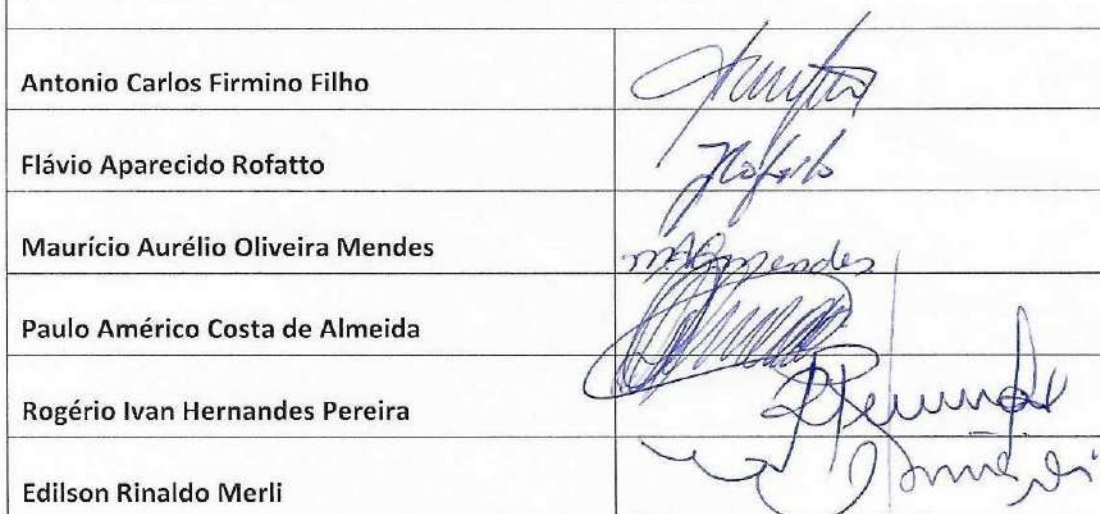 Antonio Carlos Firmino Filho
Flávio Aparecido Rofatto
Rofatto
Maurício Aurélio Oliveira Mendes
MAOMendes
Paulo Américo Costa de Almeida
Rogério Ivan Hernandes Pereira
Edilson Rinaldo Merli